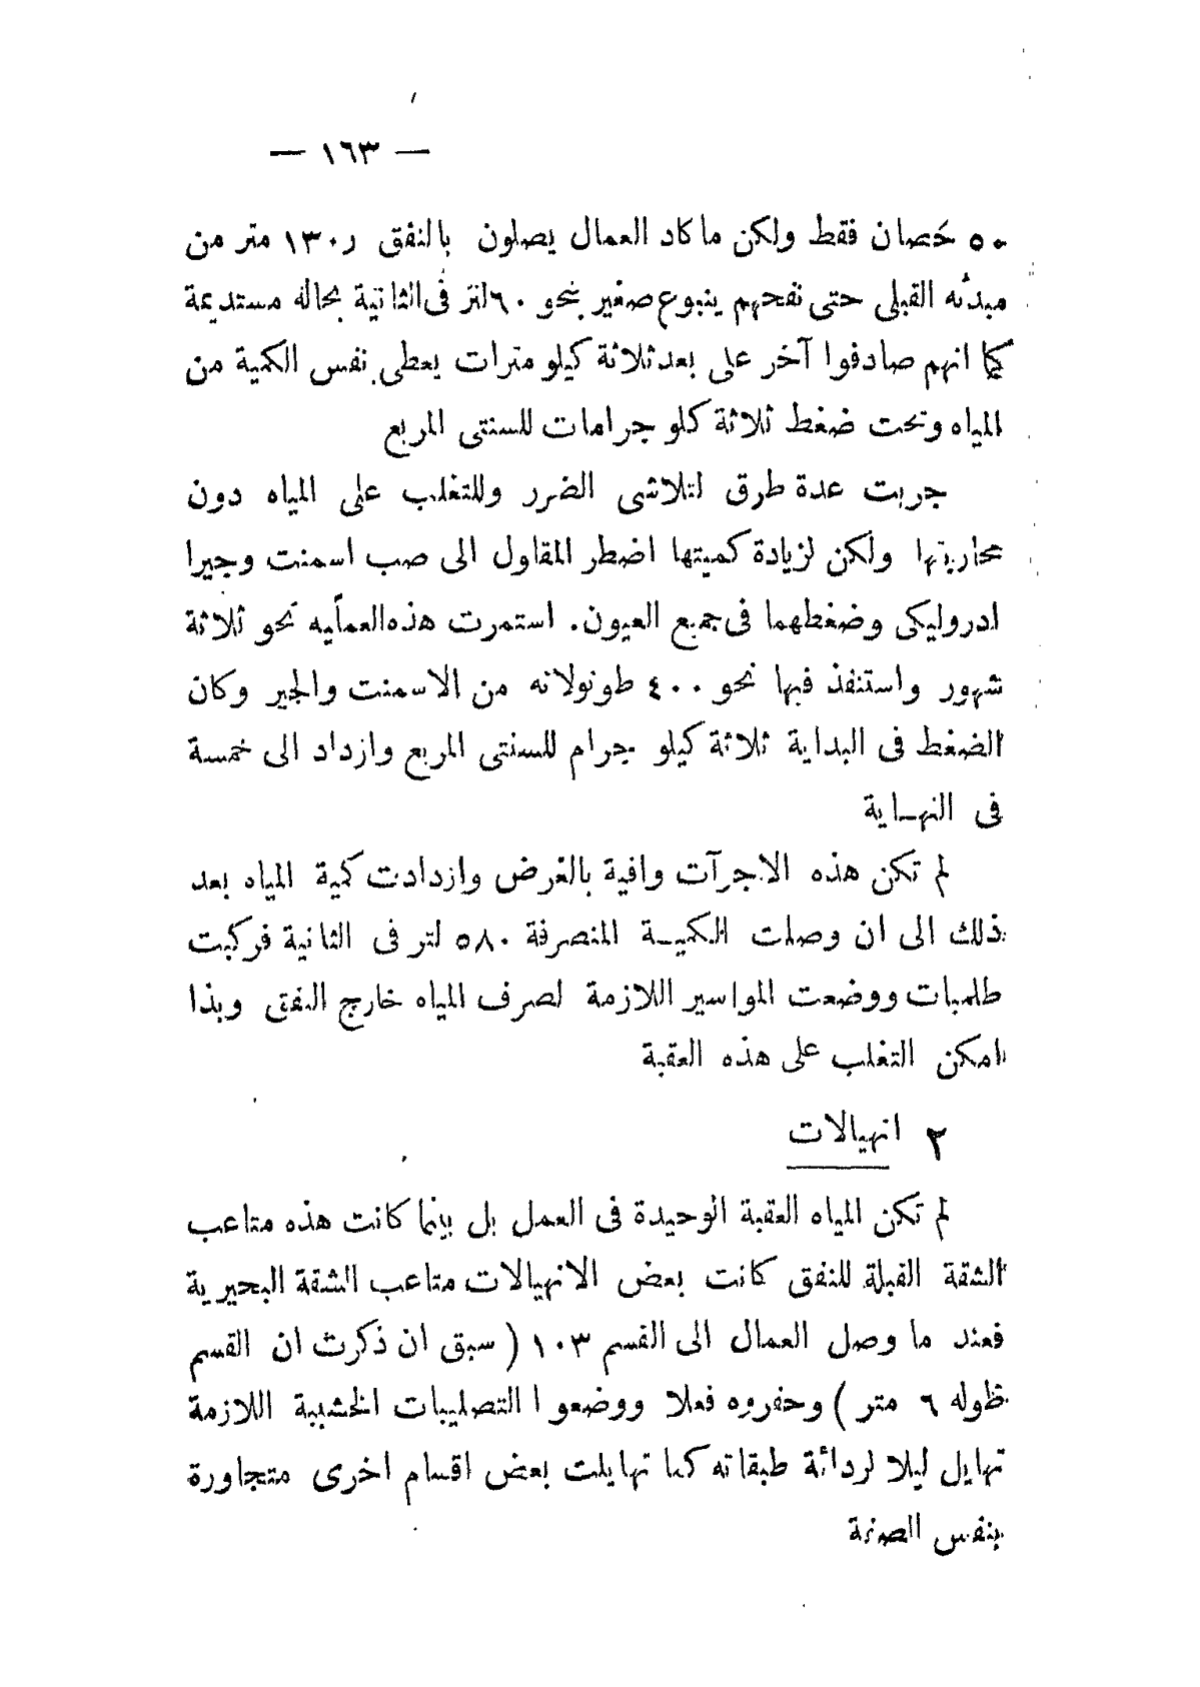 — ١٦٣ —
٥٠ حصان فقط ولكن ما كاد العمال يصلون بالنفق ر١٣٠ متر من
مبدئه القبلى حتى نفحهم ينبوع صغير بنحو ٦٠ لتر فى الثانية بحاله مستديمة
كما انهم صادفوا آخر على بعد ثلاثة كيلو مترات يعطى نفس الكمية من
المياه وتحت ضغط ثلاثة كلو جرامات للسنتى المربع
جربت عدة طرق لتلاشى الضرر وللتغلب على المياه دون
محاربتها ولكن لزيادة كميتها اضطر المقاول الى صب اسمنت وجيرا
ادروليكى وضغطهما فى جميع العيون. استمرت هذه العمليه نحو ثلاثة
شهور واستنفذ فيها نحو ٤٠٠ طونولاته من الاسمنت والجير وكان
الضغط فى البداية ثلاثة كيلو جرام للسنتى المربع وازداد الى خمسة
فى النهـاية
لم تكن هذه الاجرآت وافية بالغرض وازدادت كمية المياه بعد
ذلك الى ان وصلت الكميـة المنصرفة ٥٨٠ لتر فى الثانية فركبت
طلمبات ووضعت المواسير اللازمة لصرف المياه خارج النفق وبذا
امكن التغلب على هذه العقبة
٢ انهيالات
لم تكن المياه العقبة الوحيدة فى العمل بل بينما كانت هذه متاعب
الشقة القبلة للنفق كانت بعض الانهيالات متاعب الشقة البحيرية
فعند ما وصل العمال الى القسم ١٠٣ ( سبق ان ذكرت ان القسم
طوله ٦ متر ) وحفروه فعلا ووضعوا التصليبات الخشبية اللازمة
تهايل ليلا لردائة طبقاته كما تهايلت بعض اقسام اخرى متجاورة
بنفس الصفة